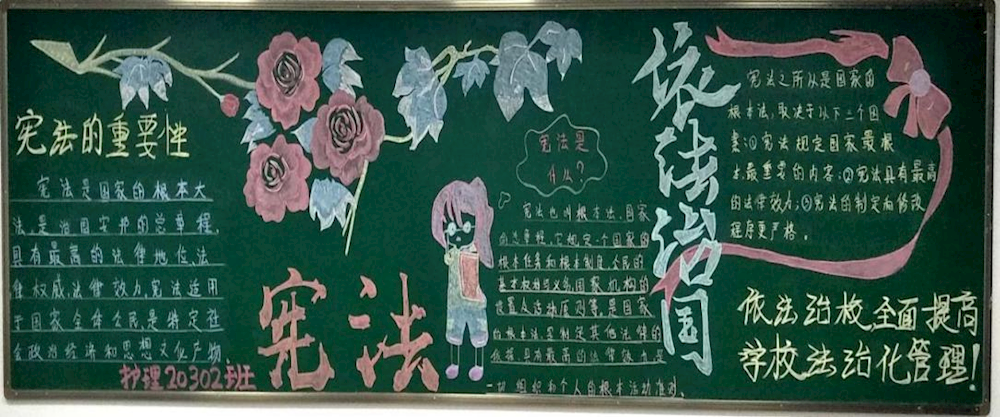 宪法的重要性
宪法是国家的根本大
法,是治国安邦的总章程,
具有最高的法律地位法
律权威,法律效力,宪法适用
于国家全体公民,是特定社
会政治经济和思想文化产物
护理20302班
宪法
宪法是
什么?
宪法也叫根本法,国家
的总章程,它规定一个国家的
根本任务和根本制度,公民的
基本权利义务国家机构的
设置及活动原则等,是国家
的根本法是制定其他法律的
依据具有最高的法律效力是
一切组织和个人的根本活动准则.
依法治国
宪法之所以是国家的
根本法,取决于以下三个因
素:①宪法规定国家最根
本最重要的内容;②宪法具有最高
的法律效力;③宪法的制定和修改
程序更严格。
依法治校全面提高
学校法治化管理!